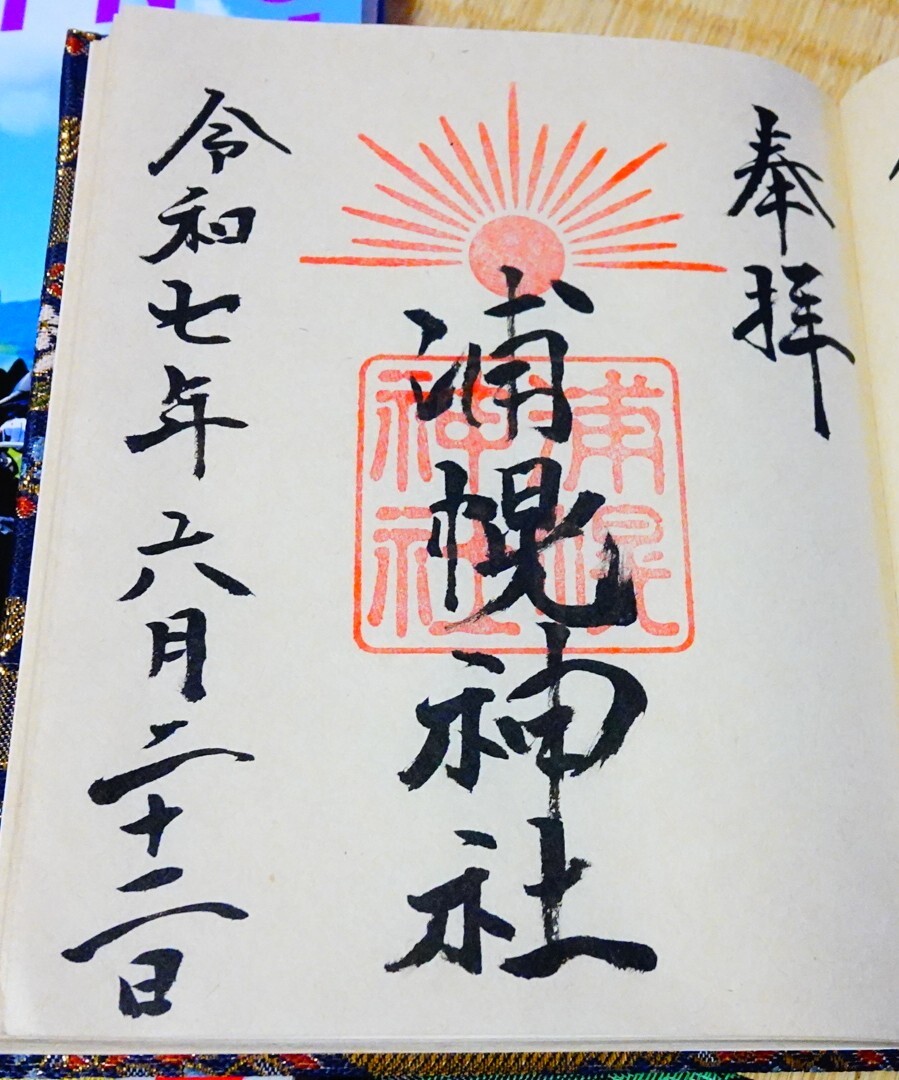 奉拝
浦幌神社
浦幌
神社
令和七年六月二十二日